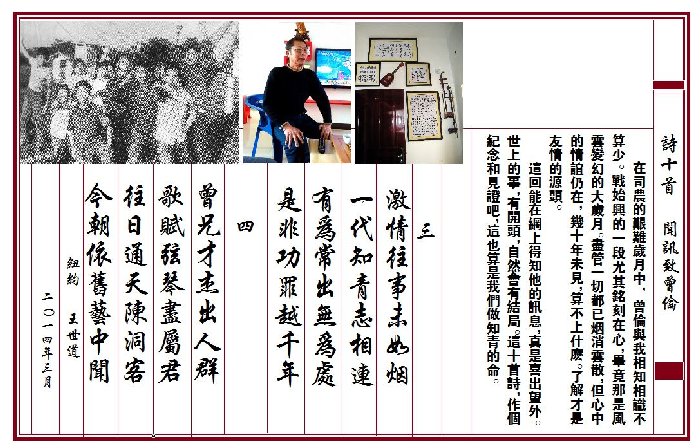 詩十首　聞訊致曾倫
在司農的艱難歲月中，曾倫與我相知相識不
算少。戰始興的一段尤其銘刻在心，畢竟那是風
雲變幻的大歲月。盡管一切都已烟消雲散，但心中
的情誼仍在，幾十年未見，算不上什麼。了解才是
友情的源頭。
這回能在網上得知他的訊息，真是喜出望外。
世上的事，有開頭，自然會有結局。這十首詩，作個
紀念和見證吧，這也算是我們做知青的命。
三
激情往事未如烟
一代知青志相連
有爲常出無爲處
是非功罪越千年
四
曾兄才杰出人群
歌賦弦琴盡屬君
往日通天陳洞客
今朝依舊藝中聞
紐約　王世道
二〇一四年三月